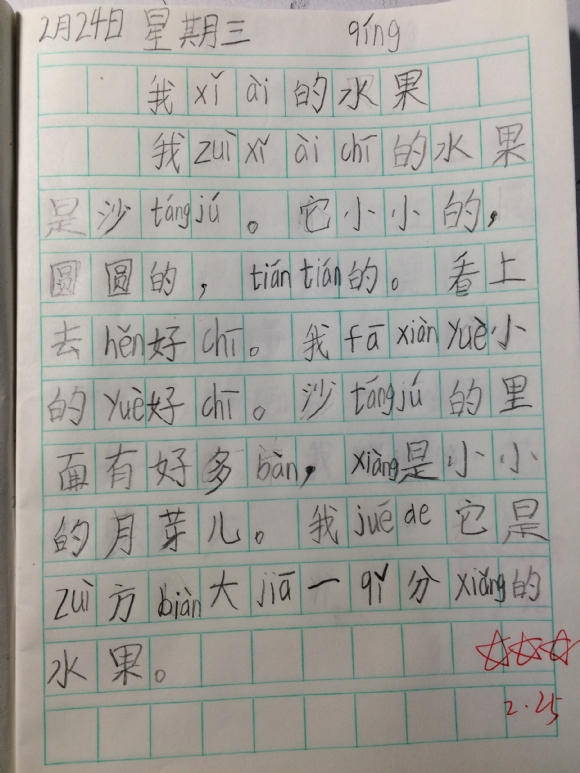 2月24日 星期三 qíng
我xǐài的水果
我zuìxǐàichī的水果
是沙tángjú。它小小的,
圆圆的,tiántián的。看上
去hěn好chī。我fāxiànyuè小
的yuè好chī。沙tángjú的里
面有好多bàn,xiàng是小小
的月芽儿。我juéde它是
zuì方biàn大jiā一qǐ分xiǎng的
水果。
2.25